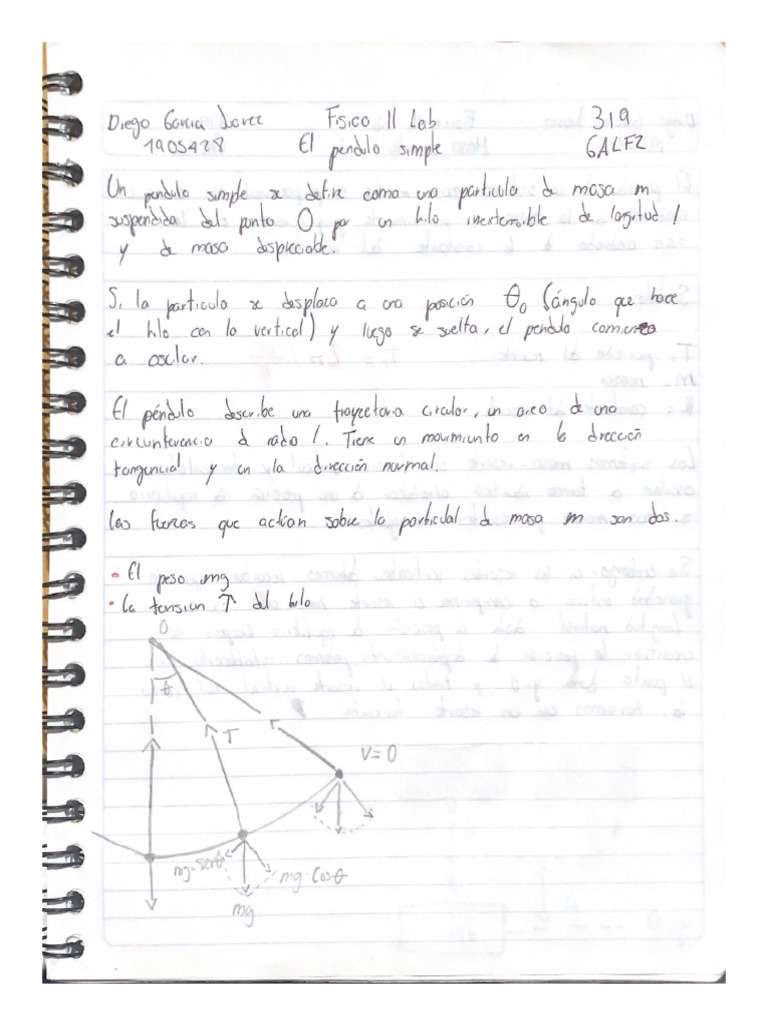 Diego Garcia Juarez Fisica II Lab 319
1905428 El péndulo simple 6ALFZ
Un pendulo simple se define como una particula de masa m
suspendida del punto O por un hilo inextensible de longitud l
y de masa despreciable.
Si la particula se desplaza a una posición θ₀ (ángulo que hace
el hilo con la vertical) y luego se suelta, el pendulo comienza
a oscilar.
El péndulo describe una trayectoria circular, un arco de una
circunferencia de radio l. Tiene un movimiento en la dirección
tangencial y en la dirección normal.
Las fuerzas que actúan sobre la particula de masa m son dos.
• El peso mg
• La tension T del hilo
O
θ
T
V=0
mg·senθ
mg·cosθ
mg